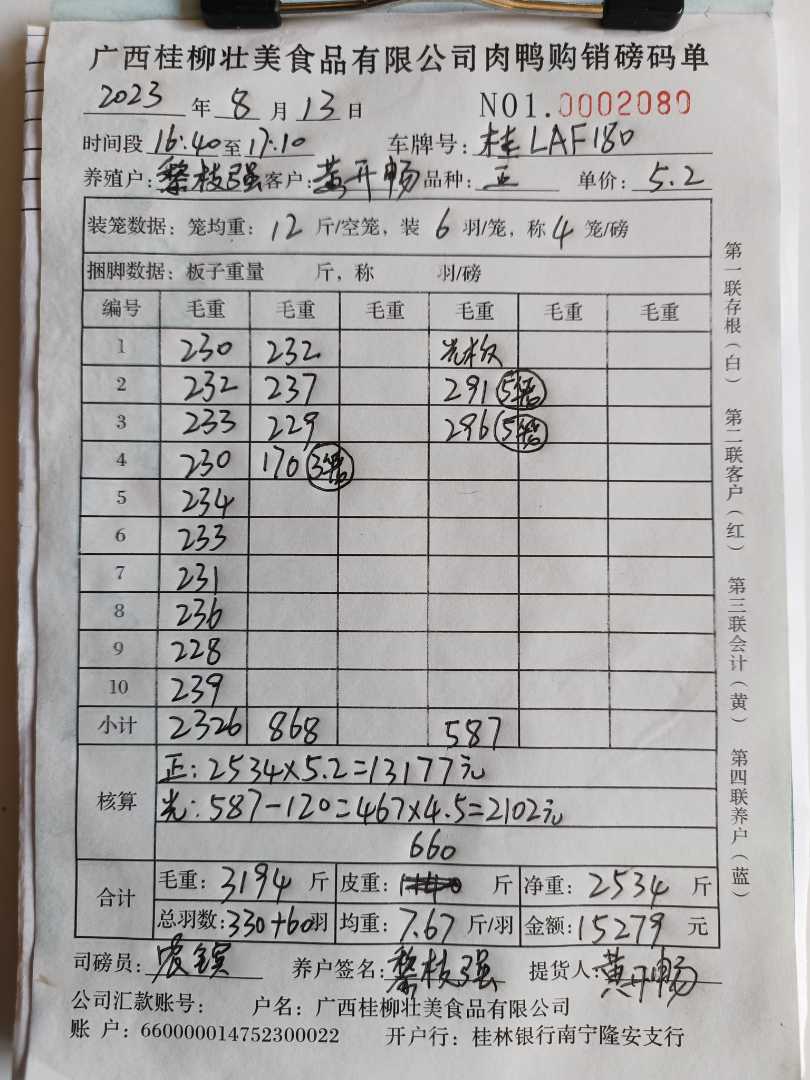 广西桂柳壮美食品有限公司肉鸭购销磅码单
2023 年 8 月 13 日 NO1.0002080
时间段 16:40 至 17:10 车牌号: 桂LAF180
养殖户: 黎枝强 客户: 黄开畅 品种: 正 单价: 5.2
装笼数据: 笼均重: 12 斤/空笼, 装 6 羽/笼, 称 4 笼/磅
捆脚数据: 板子重量 斤, 称 羽/磅
编号 毛重 毛重 毛重 毛重 毛重 毛重
1 230 232 光板
2 232 237 291 5笼
3 233 229 296 5笼
4 230 170 3笼
5 234
6 233
7 231
8 236
9 228
10 239
小计 2326 868 587
核算 正: 2534×5.2=13177元
光: 587-120=467×4.5=2102元
660
合计 毛重: 3194 斤 皮重: 斤 净重: 2534 斤
总羽数: 330+60羽 均重: 7.67 斤/羽 金额: 15279 元
司磅员: 养户签名: 黎枝强 提货人: 黄开畅
公司汇款账号: 户名: 广西桂柳壮美食品有限公司
账 户: 660000014752300022 开户行: 桂林银行南宁隆安支行
第一联存根(白) 第二联客户(红) 第三联会计(黄) 第四联养户(蓝)